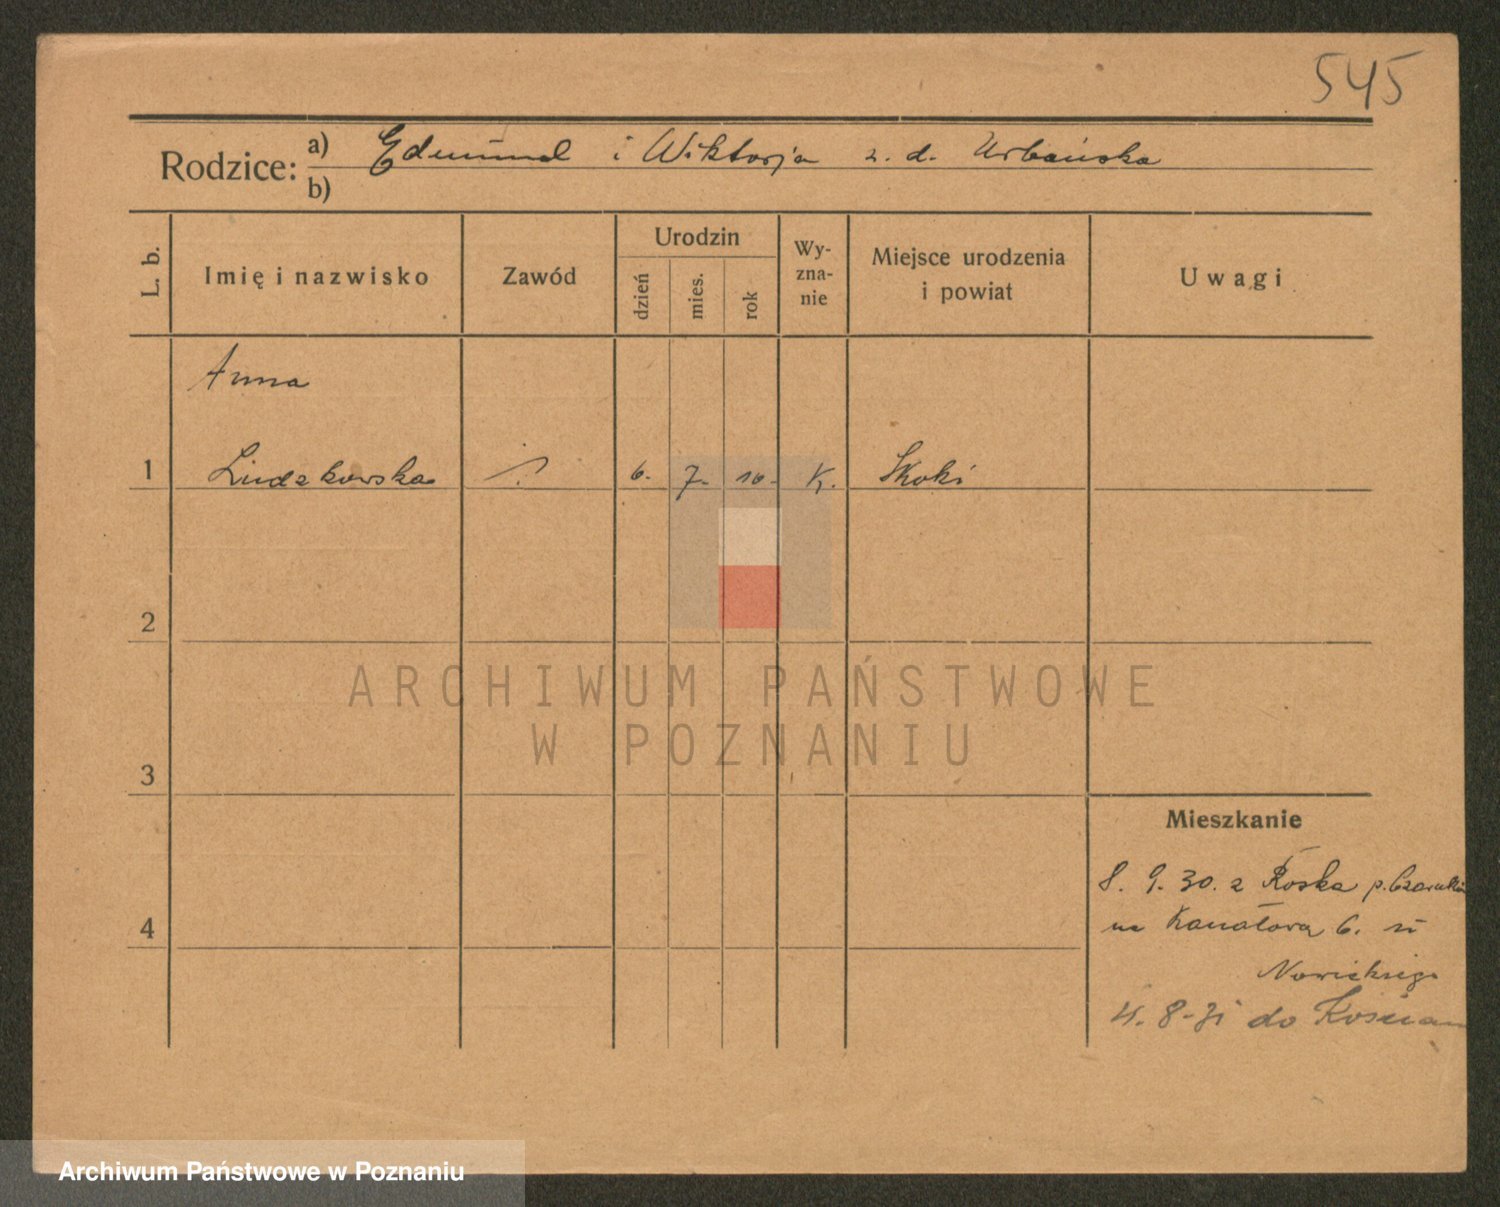 545
Rodzice: a) Edmund i Wiktorja z. d. Urbańska
b)
L. b.
Imię i nazwisko
Zawód
Urodzin
dzień
mies.
rok
Wy-
zna-
nie
Miejsce urodzenia
i powiat
Uwagi
Anna
1 Ludzkowska 6. 7. 10. K. Skoki
2
3
4
Mieszkanie
8. 9. 30. z Roska p. Czarnków
na Kanałowa 6. u
Nowickiego
4. 8-31 do Kościan
ARCHIWUM PAŃSTWOWE
W POZNANIU
Archiwum Państwowe w Poznaniu